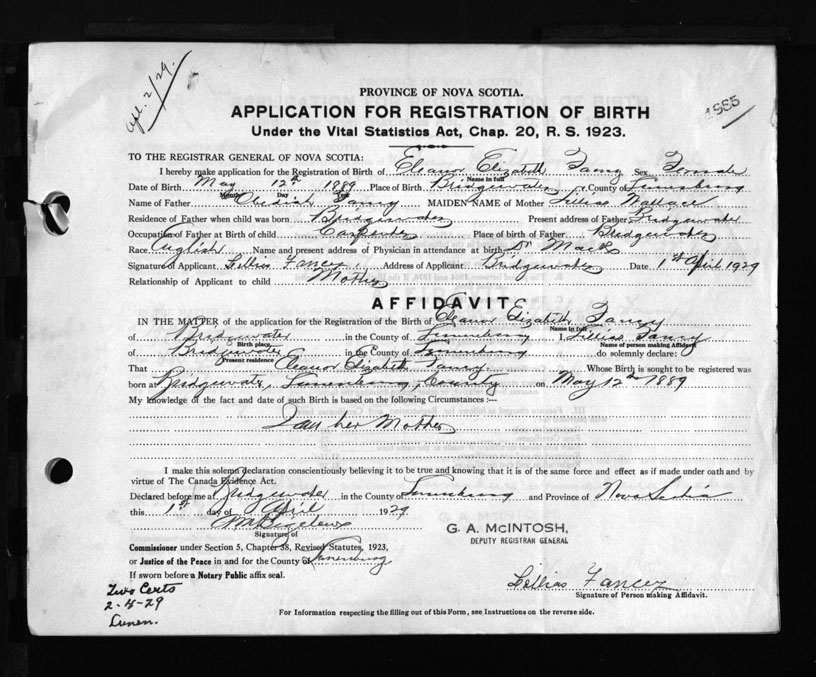 Apl. 2/29.
1985
PROVINCE OF NOVA SCOTIA.
APPLICATION FOR REGISTRATION OF BIRTH
Under the Vital Statistics Act, Chap. 20, R. S. 1923.
TO THE REGISTRAR GENERAL OF NOVA SCOTIA:
I hereby make application for the Registration of Birth of Eleanor Elizabeth Fancy Sex Female
Name in full
Date of Birth May 12th 1889 Place of Birth Bridgewater County of Lunenburg
Month Day Year
Name of Father Obediah Fancy MAIDEN NAME of Mother Lillias Wallace
Residence of Father when child was born Bridgewater Present address of Father Bridgewater
Occupation of Father at Birth of child Carpenter Place of birth of Father Bridgewater
Race English Name and present address of Physician in attendance at birth Dr
Signature of Applicant Lillias Fancy Address of Applicant Bridgewater Date 1st April 1929
Relationship of Applicant to child Mother
AFFIDAVIT
IN THE MATTER of the application for the Registration of the Birth of Eleanor Elizabeth Fancy
Name in full
of Bridgewater in the County of Lunenburg I, Lillias Fancy
Birth place Name of person making Affidavit
of Bridgewater in the County of Lunenburg do solemnly declare:
Present residence
That Eleanor Elizabeth Fancy Whose Birth is sought to be registered was
born at Bridgewater, Lunenburg, County on May 12th 1889
My knowledge of the fact and date of such Birth is based on the following Circumstances:—
I am her Mother
I make this solemn declaration conscientiously believing it to be true and knowing that it is of the same force and effect as if made under oath and by
virtue of The Canada Evidence Act.
Declared before me at Bridgewater in the County of Lunenburg and Province of Nova Scotia
this 1st day of April 1929
Signature of
G. A. McINTOSH,
DEPUTY REGISTRAR GENERAL
Commissioner under Section 5, Chapter 38, Revised Statutes, 1923,
or Justice of the Peace in and for the County of Lunenburg
If sworn before a Notary Public affix seal.
Two Certs
2-4-29
Lunen.
Lillias Fancy
Signature of Person making Affidavit.
For Information respecting the filling out of this Form, see Instructions on the reverse side.